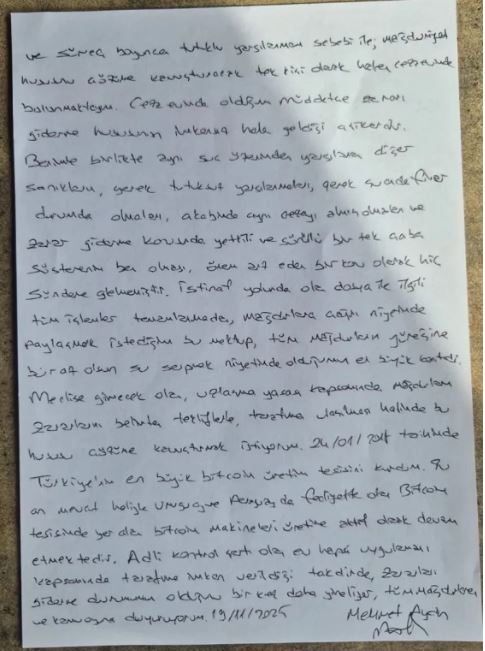 ve süreç boyunca tutuklu yargılanmam sebebi ile, mağduriyet
hususunu çözüme kavuşturacak tek kişi olarak halen cezaevinde
bulunmaktayım. Cezaevinde olduğum müddetçe zararı
giderme hususunun imkansız hale geldiği aşikardır.
Benimle birlikte aynı suç üzerinden yargılanan diğer
sanıkların, gerek tutuksuz yargılanmaları, gerek şu anda firar
durumda olmaları, akabinde aynı cezayı almış olmaları ve
zarar giderme konusunda yetkili ve sürekli bir tek çaba
gösterenin ben olması, önem arz eden bir konu olarak hiç
gündeme gelmemiştir. İstinaf yolunda olan dosya ile ilgili
tüm işlemler tamamlanmadan, mağdurlara çağrı niyetinde
paylaşmak istediğim bu mektup, tüm mağdurların yüreğine
bir nebze olsun su serpmek niyetinde olduğumun en büyük kanıtıdır.
Meclise girecek olan, uzlaşma yasası kapsamında, mağdurların
zararlarını belirten tekliflerle, tarafıma ulaşılması halinde bu
hususu çözüme kavuşturmak istiyorum. 24/01/2018 tarihinde
Türkiye'nin en büyük bitcoin üretim tesisini kurdum. Şu
an mevcut haliyle Uruguay ve Paraguay'da faaliyette olan Bitcoin
tesisinde yer alan bitcoin makineleri üretime aktif olarak devam
etmektedir. Adli kontrol şartı olan ev hapsi uygulaması
kapsamında tarafıma imkan verildiği takdirde, zararları
giderme durumunun olduğunu bir kez daha yineliyor, tüm mağdurlara
ve kamuoyuna duyuruyorum. 19/11/2025
Mehmet Aydın